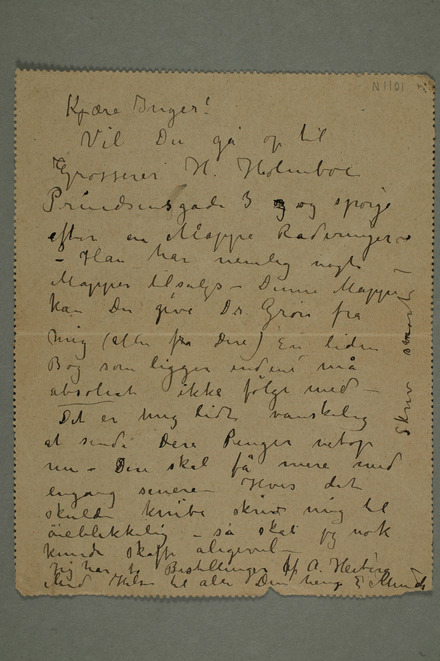 N 1101
Kjære Inger!
Vil Du gå op til
Grosserer H. Holmboe
Prindsensgade 3 og spørge
efter en Mappe Raderinger
– Han har nemlig nogle
Mapper tilsalgs – Denne Mappe
kan Du give Dr. Grøn fra
mig (eller fra Dere) En liden
Bog som ligger indeni må
absolut ikke følge med –
Det er mig lidt vanskelig
at sende Dere Penger netop
nu – Dere skal få mere med
engang senere – Hvis det
skulde knibe skriv mig til
øieblikkelig – så skal jeg nok
kunde skaffe aligevel –
Jeg har to Bestillinger af A. Heiberg
Hils til alle Din heng E Munch
Skriv snart